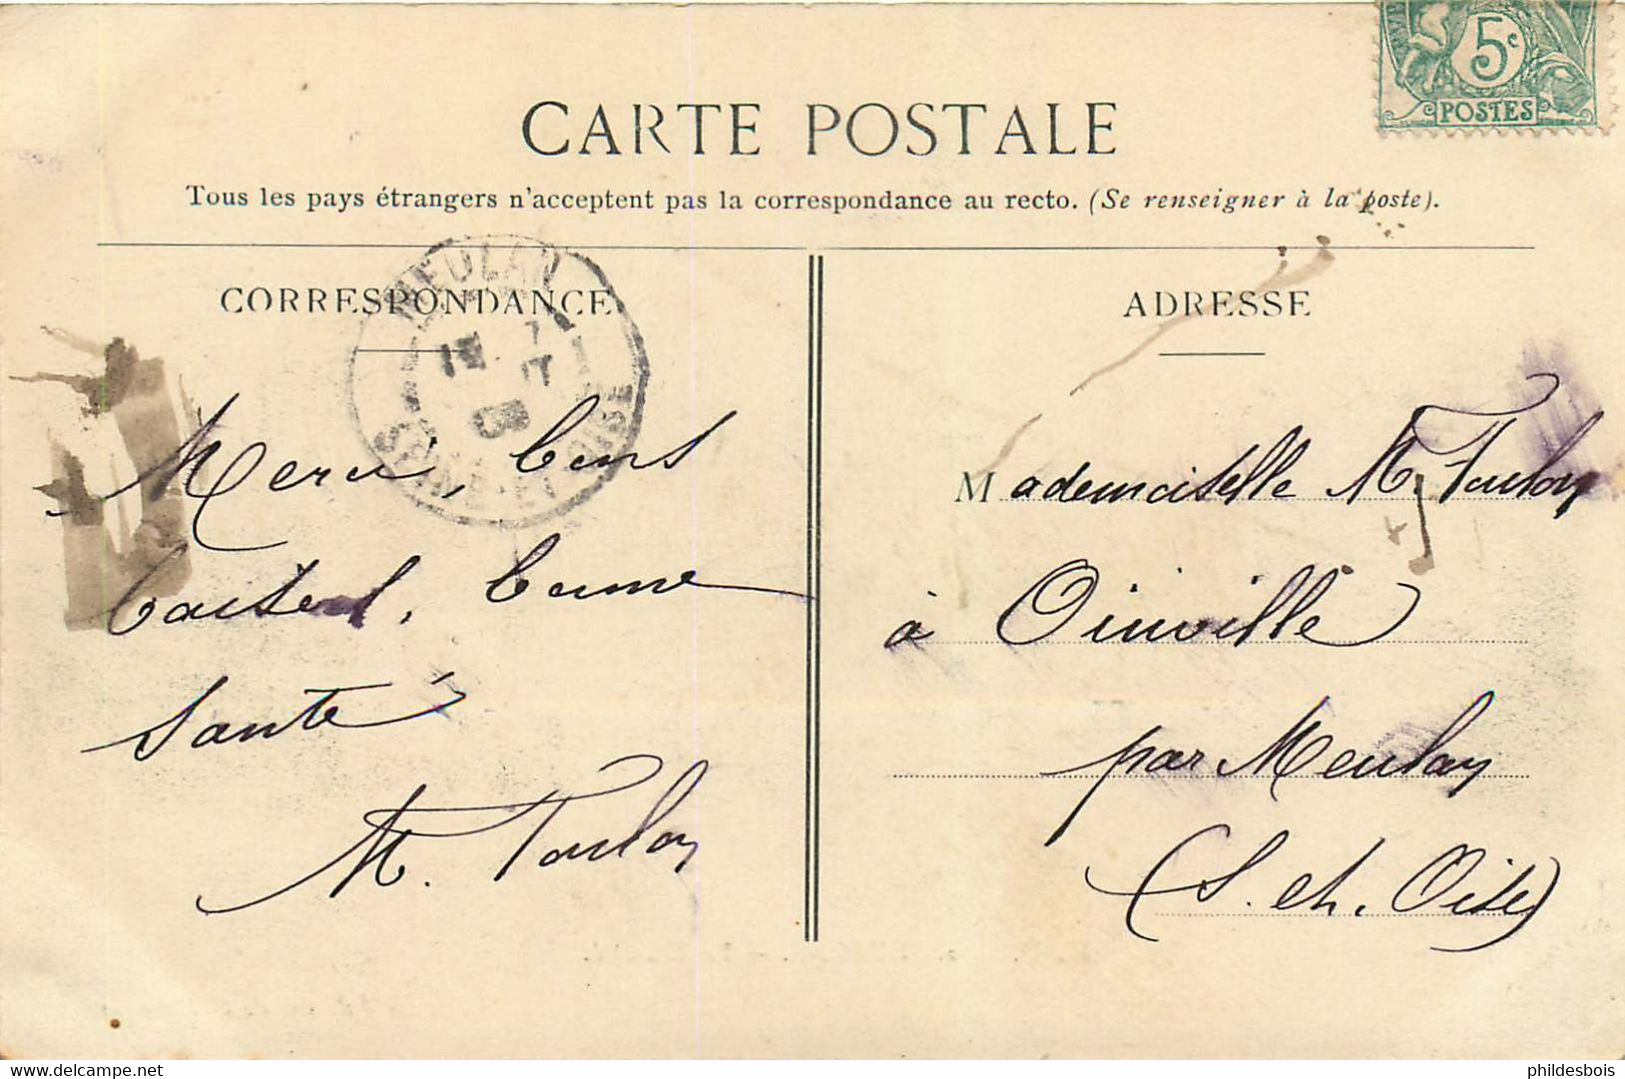 5c
POSTES
CARTE POSTALE
Tous les pays étrangers n'acceptent pas la correspondance au recto. (Se renseigner à la poste).
CORRESPONDANCE
MEULAN
SEINE-ET-OISE
Merci, bons
baisers, bonne
Santé
M. Toulon
ADRESSE
Mademoiselle M. Toulon
à Oinville
par Meulan
(S. et. Oise)
Delcampe.net
phildesbois